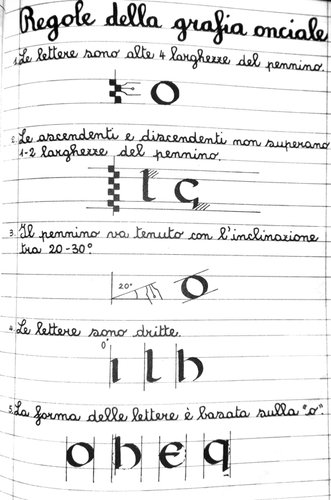 Regole della grafia onciale
1. Le lettere sono alte 4 larghezze del pennino.
o
2. Le ascendenti e discendenti non superano
1-2 larghezze del pennino.
l q
3. Il pennino va tenuto con l'inclinazione
tra 20-30°.
20° o
4. Le lettere sono dritte.
0°
i l h
5. La forma delle lettere è basata sulla "o".
o h e q